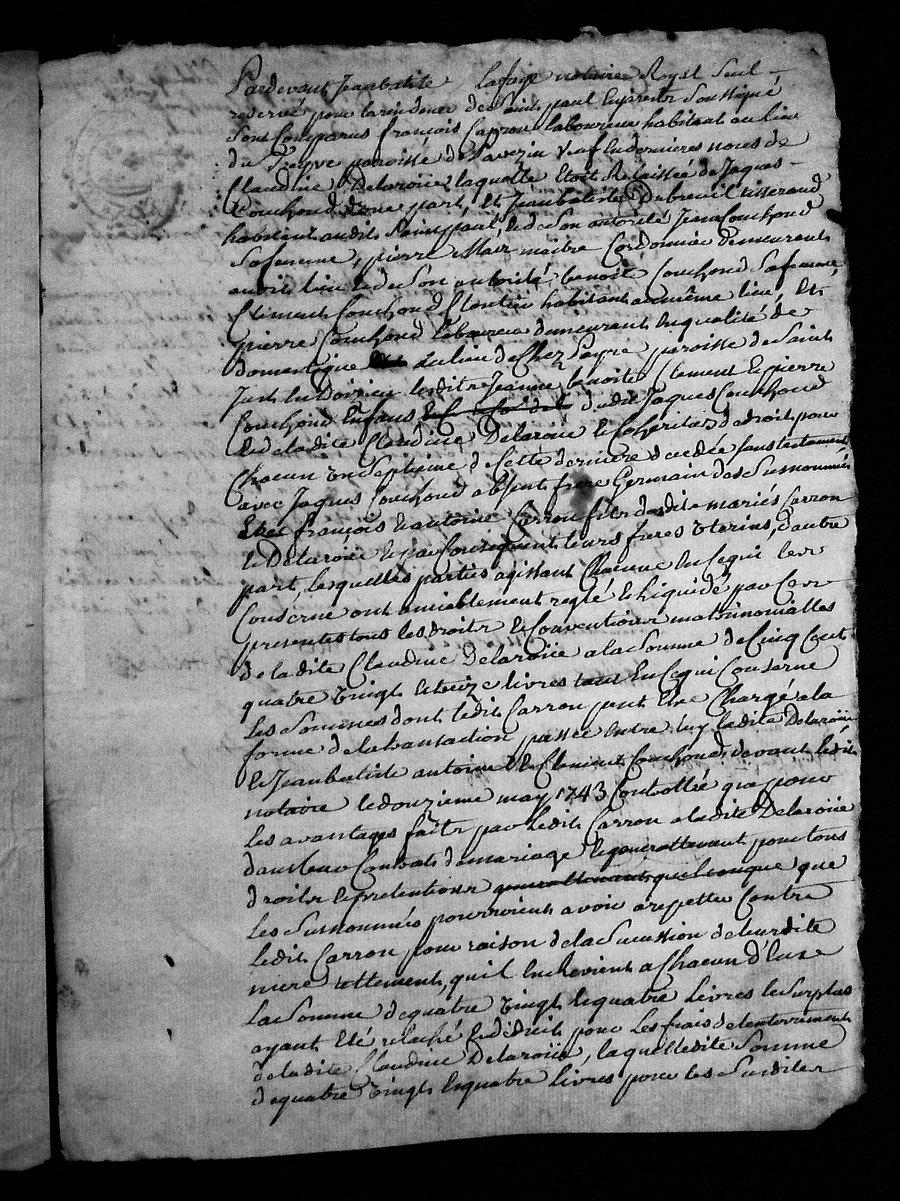 Pardevant Jeanbatite Lafaye notaire Royal Seul
reservé pour la residence de Saint paul Enprest Soussigné
Sont Comparus françois Carron laboureur habitant au lieu
du paroisse de Laverin Veuf En dernieres noces de
Claudine Delaroüe laquelle Etoit Relaissée de Jaques
Couchoud d'une part, Et Jeanbatiste Debreuil tisserand
habitant audit Saint paul, & de Son autorité Jeanne Couchoud
Sa femme, pierre Mair maitre Cordonnier demeurant
audit lieu & de Son autorité benoite Couchoud Sa femme,
Climent Couchoud Cloutier habitant au même lieu, Et
pierre Couchoud laboureur demeurant En qualité de
domestique au lieu de Chez Peyre paroisse de Saint
Just En Doizieu lesdites Jeanne benoite Clement & pierre
Couchoud Enfans dudit Jaques Couchoud
& de ladite Claudine Delaroüe & Coheritiers de droit pour
Chacun un Septieme de Cette derniere decedée sans testament,
avec Jaques Couchoud absent frere Germain des Surnommés
Et françois & antoine Carron fils desdits mariés Carron
& Delaroüe & par Consequent leurs freres Uterins, d'autre
part, lesquelles parties agissant Chacune En Ce qui les
Conserne ont amiablement reglé & liquidé par Ces
presentes tous les droits & Conventions matrimonialles
de ladite Claudine Delaroüe a la Somme de Cinq Cent
quatre Vingt & treize livres tant En Ce qui Conserne
les Sommes dont ledit Carron peut Etre Chargé a la
forme de la transaction passée Entre luy ladite Delaroüe
& Jeanbatiste antoine & Clement Couchoud devant ledit
notaire le douzieme may 1743 Controllée que pour
les avantages faits par ledit Carron a ladite Delaroüe
dans leur Contrats de mariage & generallement pour tous
droits & pretentions generallement quelconque que
les Surnommés pourroient avoir a repetter Contre
ledit Carron pour raison de la Sucession de leurdite
mere tellement, qu'il En Revient a Chacun d'Eux
la Somme de quatre Vingt & quatre livres le Surplus
ayant Eté relaché & deduit pour les frais de lenterrement
de ladite Claudine Delaroüe, laquelle dite Somme
de quatre Vingt & quatre livres pour les Susdites